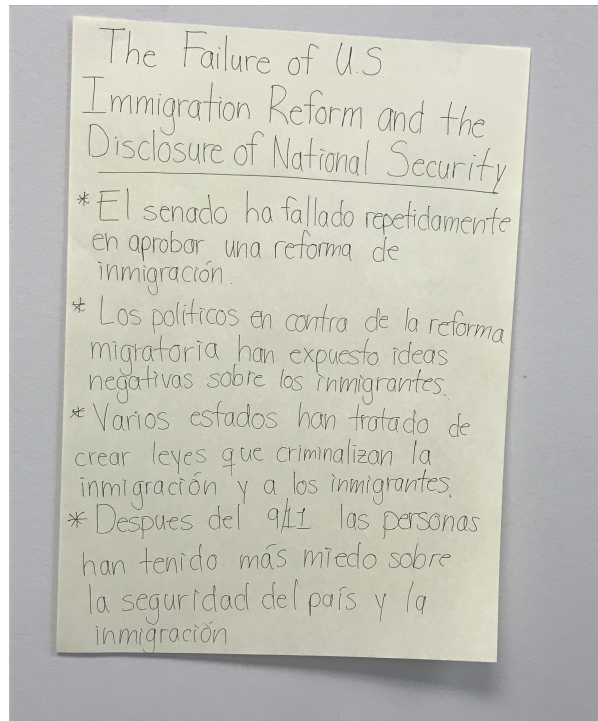 The Failure of U.S
Immigration Reform and the
Disclosure of National Security
* El senado ha fallado repetidamente
en aprobar una reforma de
inmigración.
* Los políticos en contra de la reforma
migratoria han expuesto ideas
negativas sobre los inmigrantes.
* Varios estados han tratado de
crear leyes que criminalizan la
inmigración y a los inmigrantes.
* Despues del 9/11 las personas
han tenido más miedo sobre
la seguridad del país y la
inmigración